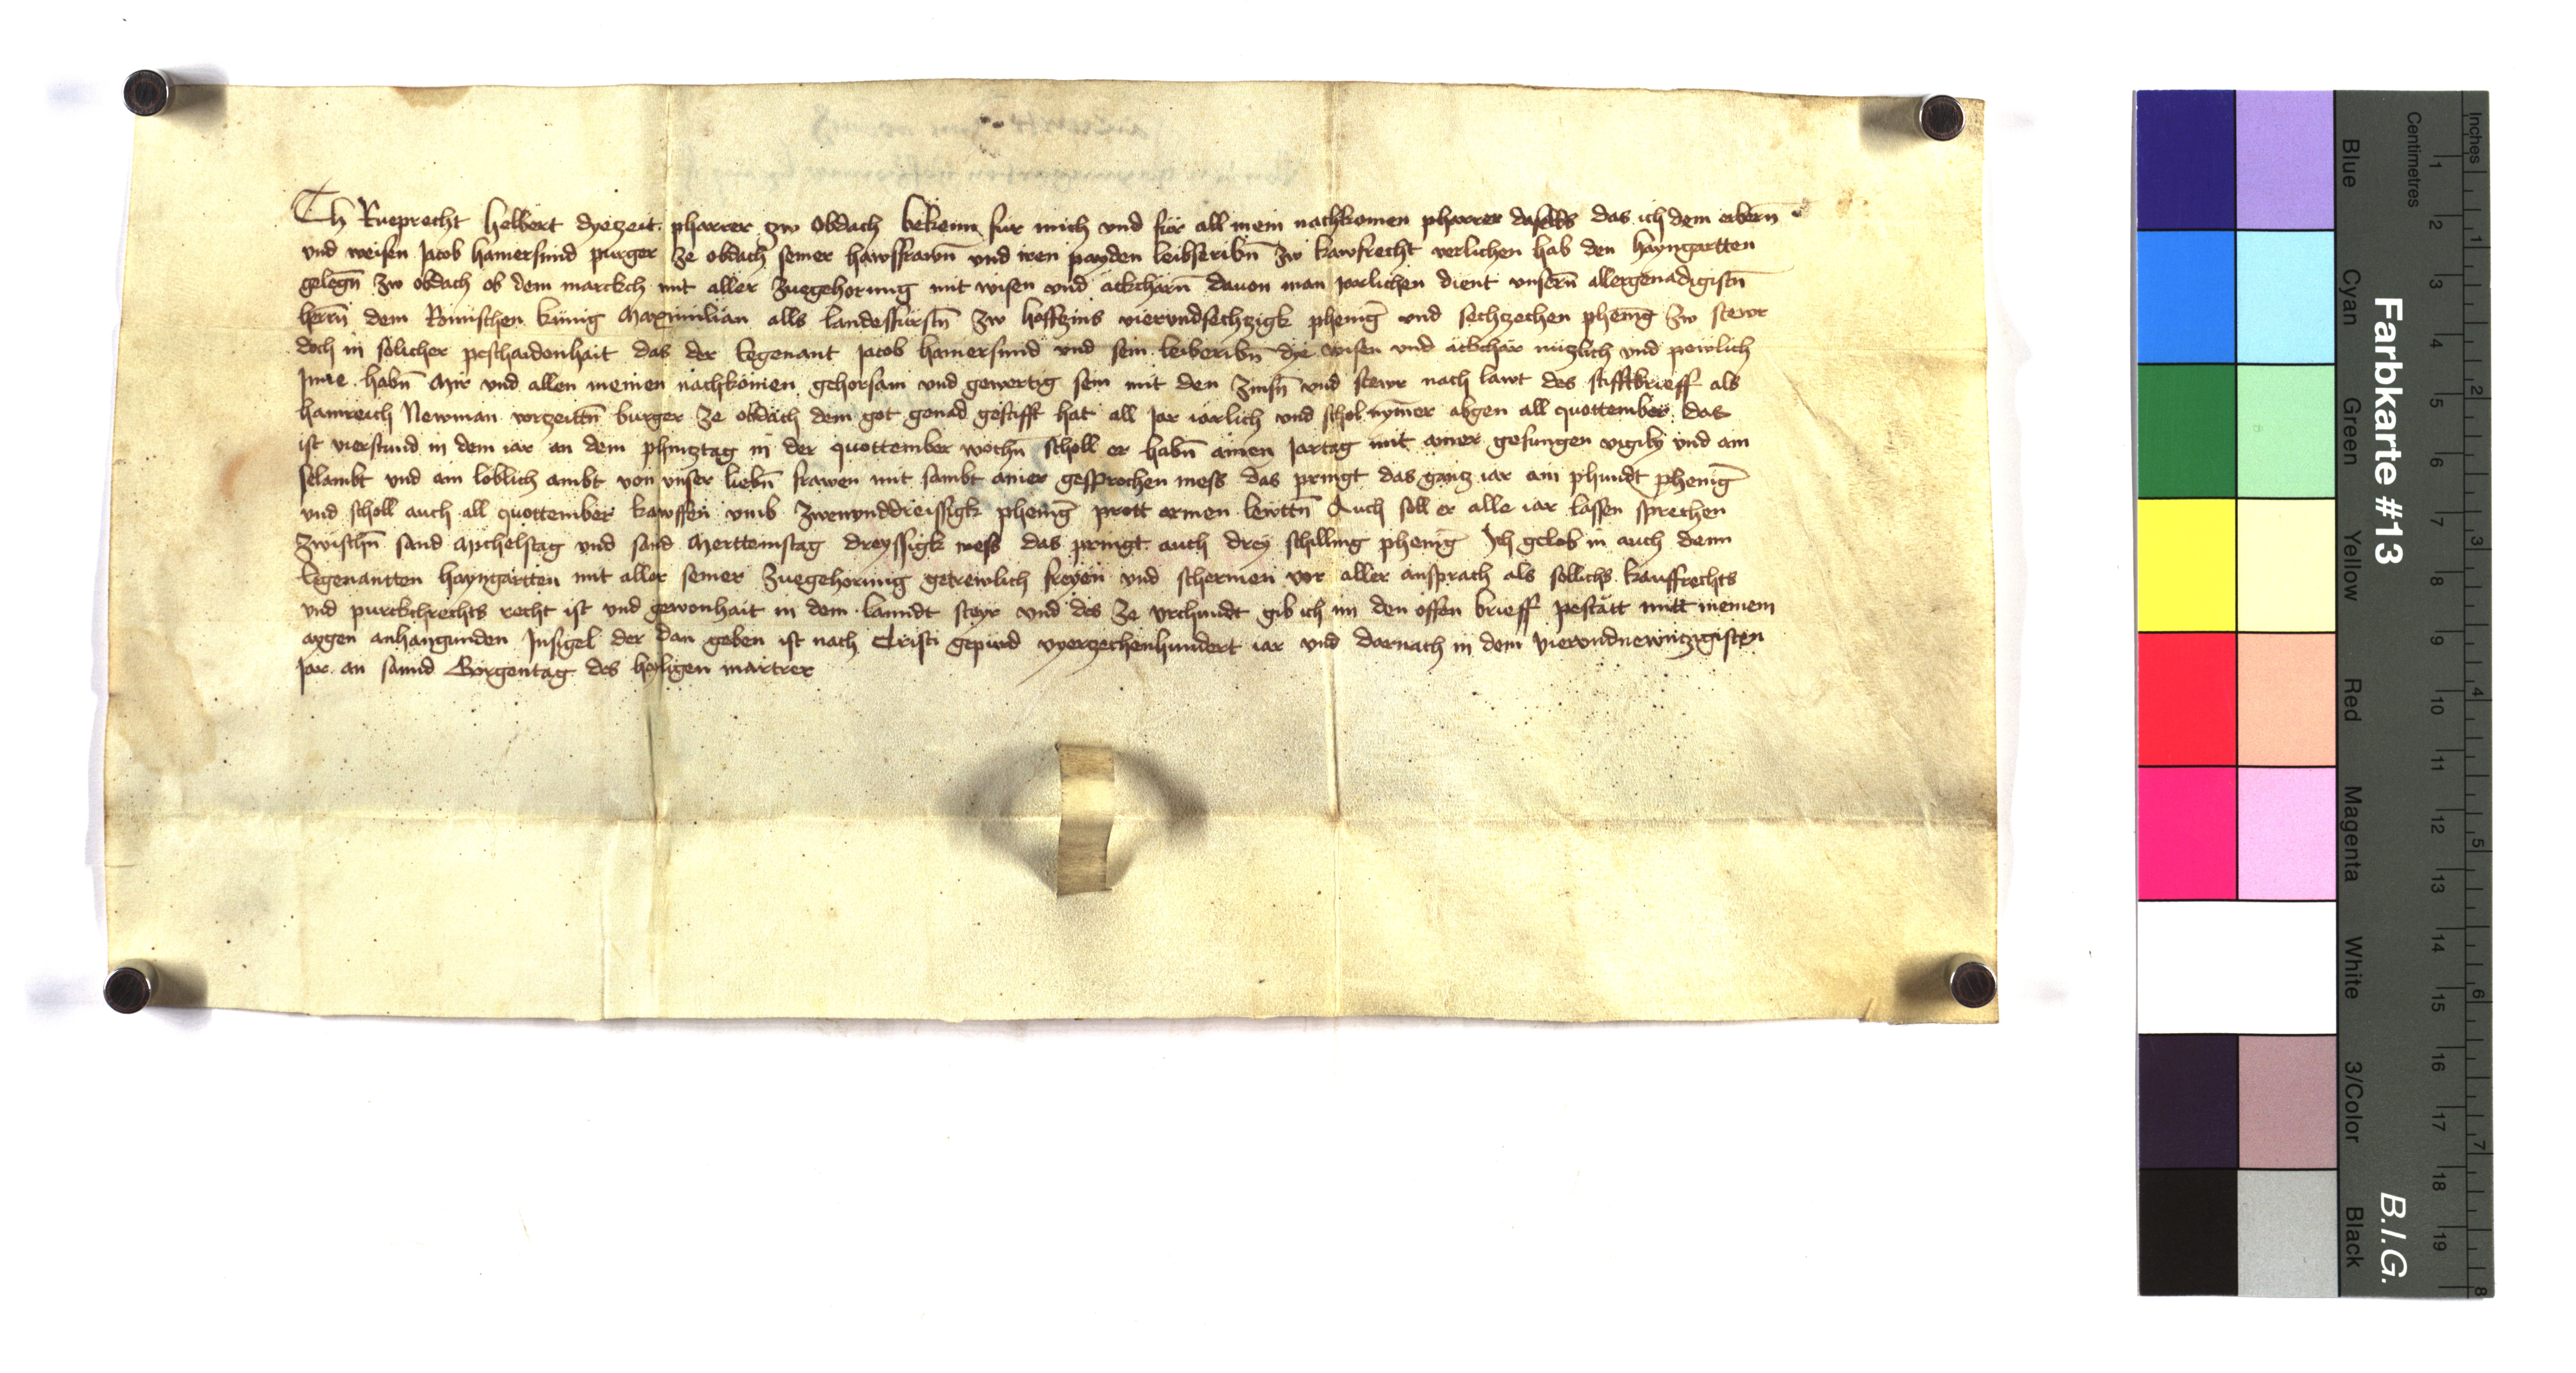 Ich Rueprecht helbert dyezeit pharrer zw Obdach bekenn für mich und für all mein nachkomen pharrer daselbs das ich dem erbern̄
und weisen Jacob hamersmid purger ze obdach seiner hawsfrawn̄ und iren payden leibseribn̄ zw kawfrecht verlichen hab den hayngartten
gelegn̄ zw obdach ob dem marckch mit aller zuegehorung mit wisen und äckcharn̄ dauon man jarlichen dient unsern̄ allergenadigistn̄
herrn̄ dem Römischen künig Maximilian alls landesfürstn̄ zw hoffzins vierundsechzigk pheniḡ und sechzechen pheniḡ zw stewr
doch in sölicher peschaidenhait das der begenant Jacob hamersmid und sein leiberibn̄ die wisen und äckchär nüzlich und pewlich
Inne habn̄ Mir und allen meinen nachkömen gehorsam und gewertig sein mit den zinsn̄ und stewr nach lawt des stifftbrieff als
hainreich Newman vorzeittn̄ burger ze obdach dem got genad gestifft hat all Jar iarlich und schol nymer abgen all quottember das
ist vierstund in dem iar an dem phincztag in der quottember wochn̄ scholl er habn̄ ainen Jartag mit ainer gesungen vigily und ain
selambt und ain loblich ambt von unser liebn̄ frawen mit sambt ainer gesprochen mess das pringt das gancz iar ain phundt pheniḡ
und scholl auch all quottember kawffen umb zwenunddreissigk pheniḡ prott armen lewttn̄ Auch soll er alle iar lassen sprechen
zwischn̄ sand Michelstag und sand Merttemstag dreyssigk mess das pringt auch drey schilling pheniḡ Ich gelob in auch denn
begenantten hayngartten mit aller seiner zuegehorung getrewlich freyen und schermen vor aller ansprach als sollichs kauffrechts
und purckchrechts recht ist und gewonhait in dem lanndt steyr und des ze urchundt gib ich im den offen brieff pestätt mitt meinem
aygen anhangunden Insigel der dan geben ist nach Cristi gepurd vyerzechenhundert iar und darnach in dem vierundnewnczigisten
Jar an sannd Görgentag des heyligen martrer
Farbkarte #13
B.I.G.
Centimetres
Inches
Blue
Cyan
Green
Yellow
Red
Magenta
White
3/Color
Black
1 2 3 4 5 6 7 8 9 10 11 12 13 14 15 16 17 18 19
1 2 3 4 5 6 7 8